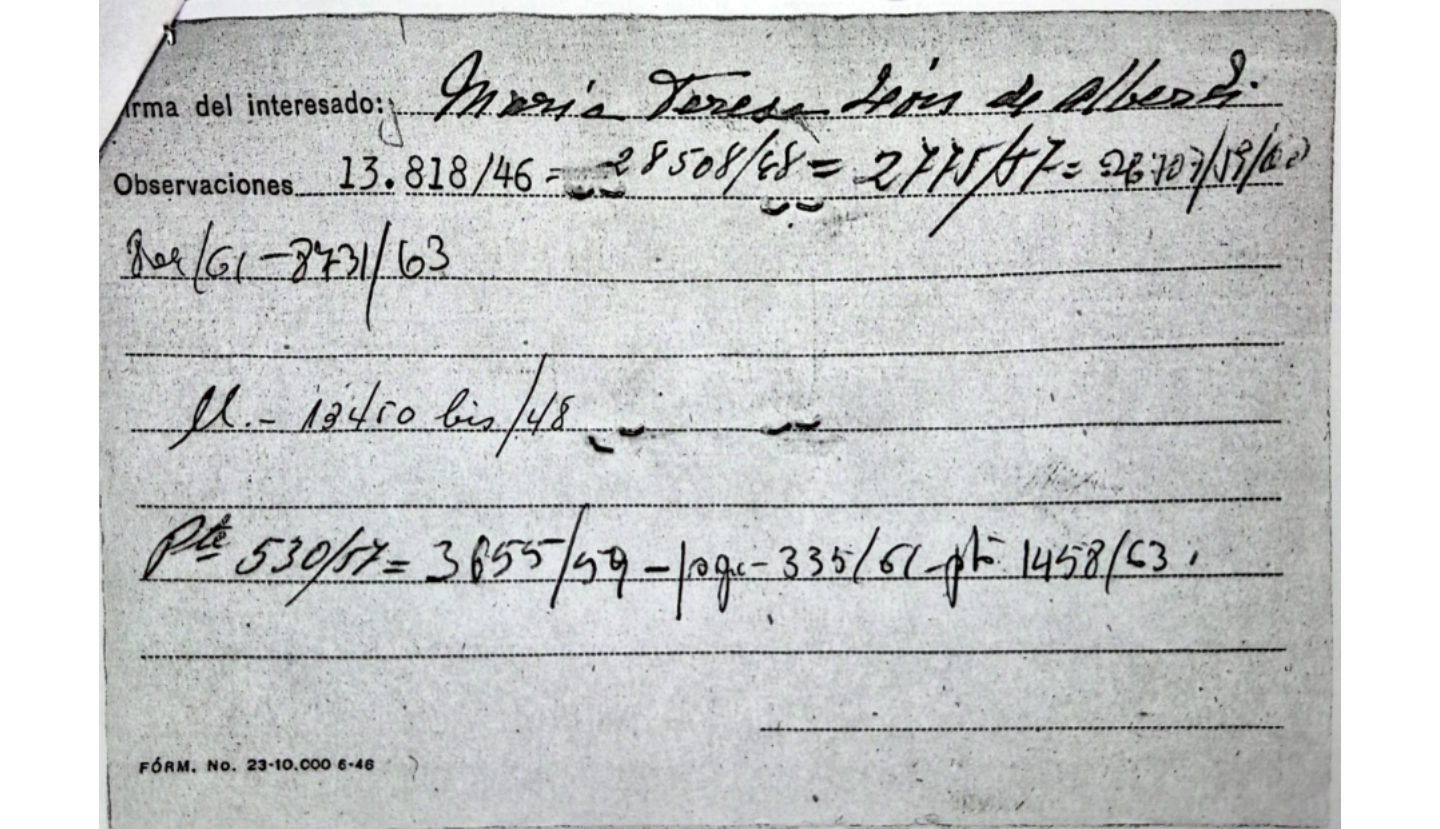 irma del interesado: María Teresa León de Alberti.
Observaciones 13.818/46 = 28508/48 = 2775/57 = 28707/59/
/61 - 8731/63
M.- 13450 bis/48
Pte 530/57 = 3655/59 - 335/61 - pte 1458/63.
FÓRM. No. 23-10.000 6-46